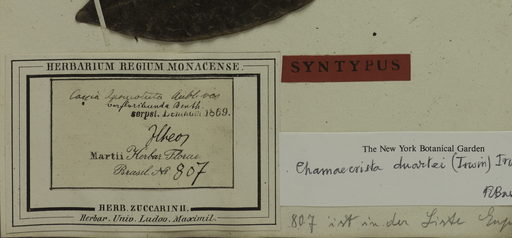 HERBARIUM REGIUM MONACENSE.
Cassia Aubl. var.
Benth.
serpsi. 1869.
Ilheos
Martii Herbar. Florae
Brasil. No 807
HERB. ZUCCARINII.
Herbar. Univ. Ludov. Maximil.
SYNTYPUS
The New York Botanical Garden
Chamaecrista duartei (Irwin)
807 ist in der Liste